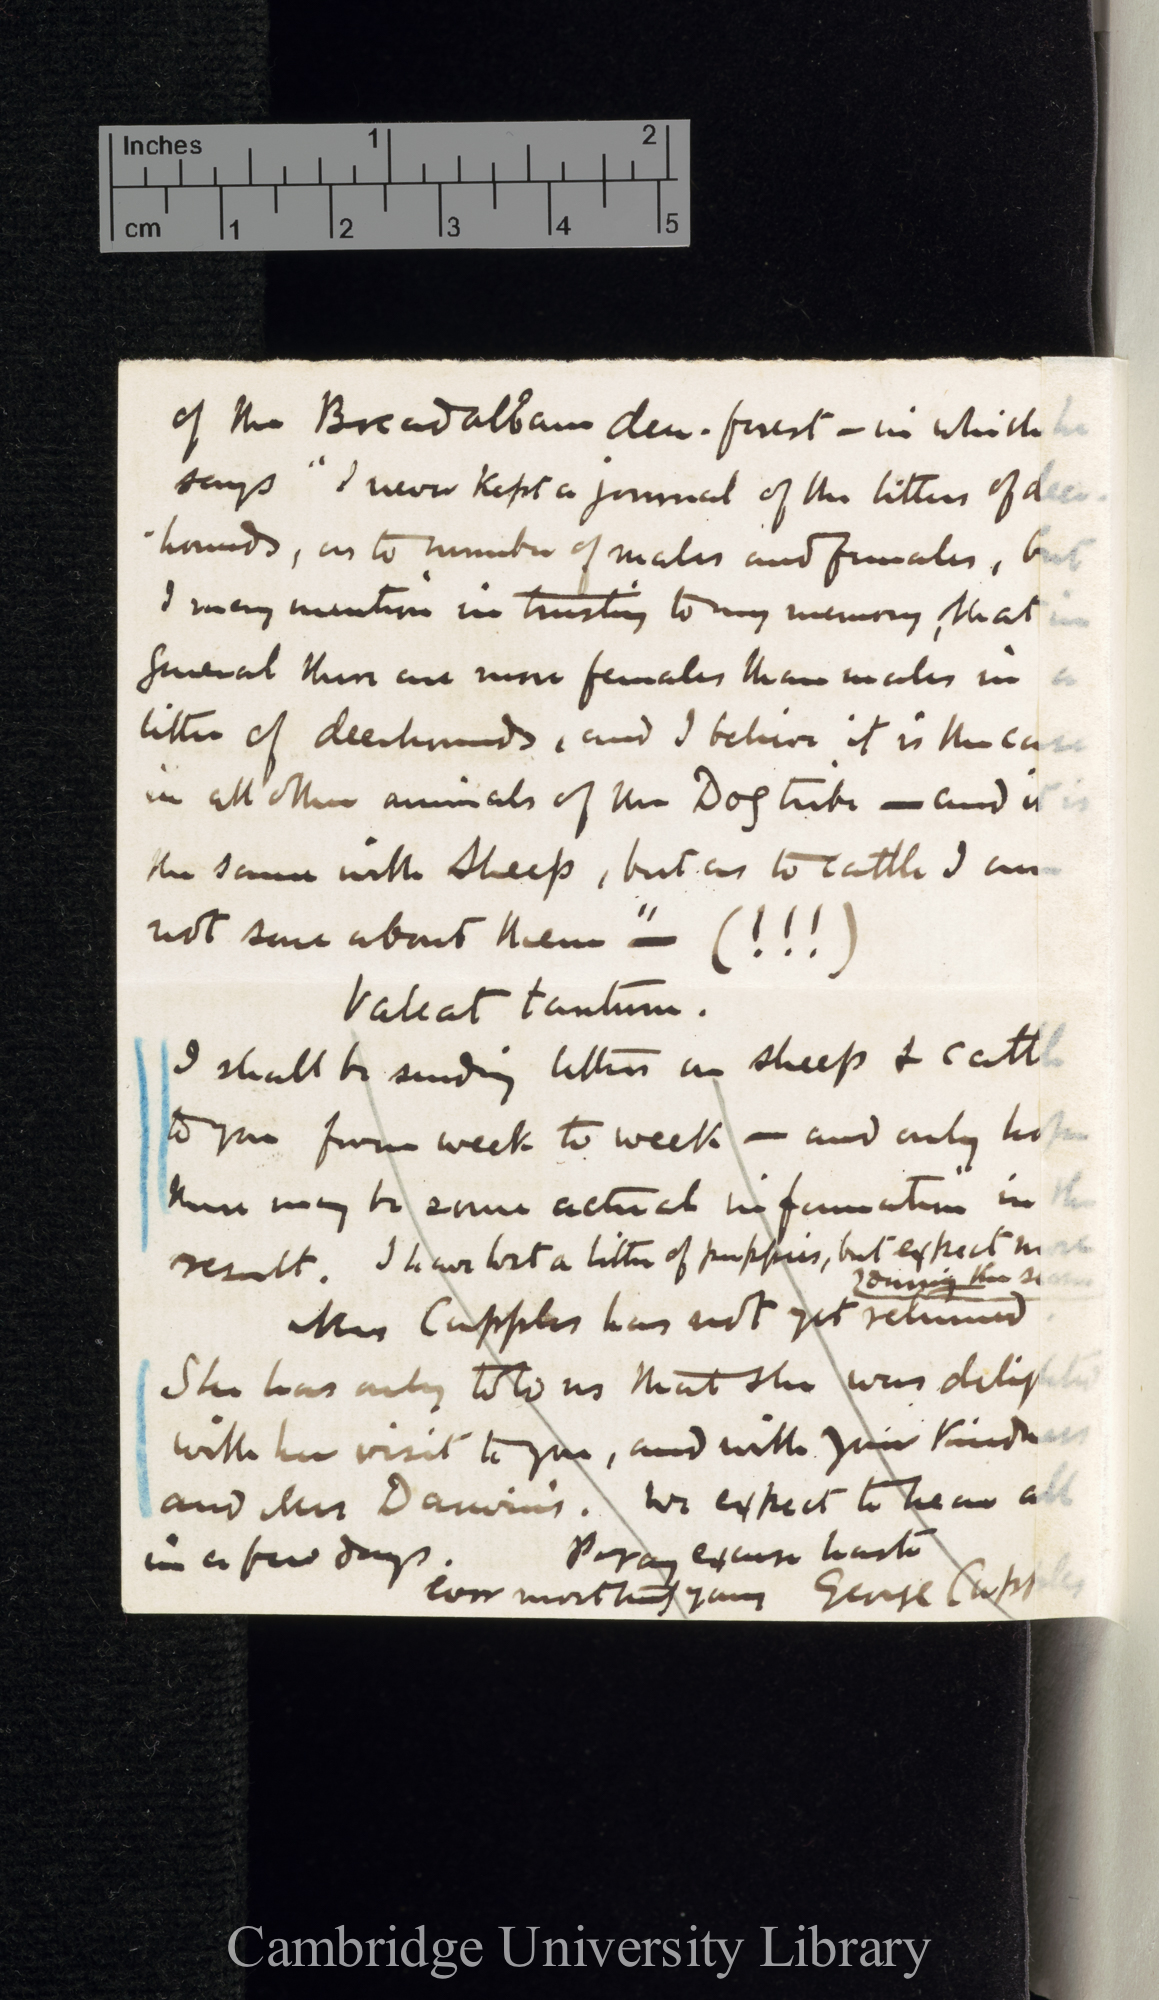 Inches 1 2
cm 1 2 3 4 5
of the Breadalbane deer-forest – in which he
says "I never kept a journal of the litters of deer-
-hounds, as to number of males and females, but
I may mention in trusting to my memory, that in
general there are more females than males in a
litter of deerhounds, and I believe it is the case
in all other animals of the Dog tribe — and it is
the same with Sheep, but as to cattle I am
not sure about them" — (!!!)
Valeat tantum.
I shall be sending letters on sheep & cattle
to you from week to week — and only hope
there may be some actual information in the
result. I have lost a litter of puppies, but expect more
during the season
Mrs Cupples has not yet returned.
She has only told us that she was delighted
with her visit to you, and with your kindness
and Mrs Darwin's. We expect to hear all
in a few days. Pray excuse haste
Ever most truly yours George Cupples
Cambridge University Library